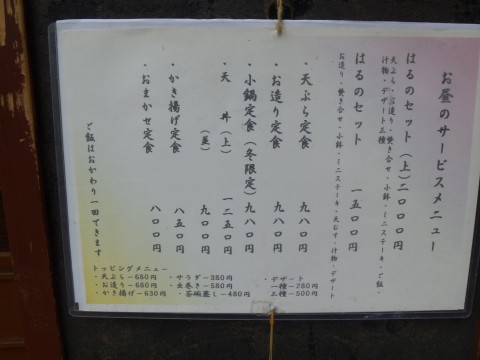 お昼のサービスメニュー
はるのセット（上）二〇〇〇円
天ぷら・お造り・焚き合せ・小鉢・ミニステーキ・ご飯・
汁物・デザート三種
はるのセット 一五〇〇円
お造り・焚き合せ・小鉢・ミニステーキ・天おす・汁物・デザート
・天ぷら定食 九八〇円
・お造り定食 九八〇円
・小鍋定食（冬限定）九八〇円
・天 丼（上） 一二五〇円
（並） 九〇〇円
・かき揚げ定食 八五〇円
・おまかせ定食 八〇〇円
ご飯はおかわり一回できます
トッピングメニュー
・天ぷら－680円
・お造り－680円
・かき揚げ－630円
・サラダ－380円
・出巻き－580円
・茶碗蒸し－480円
・デザート
一種－280円
三種－500円